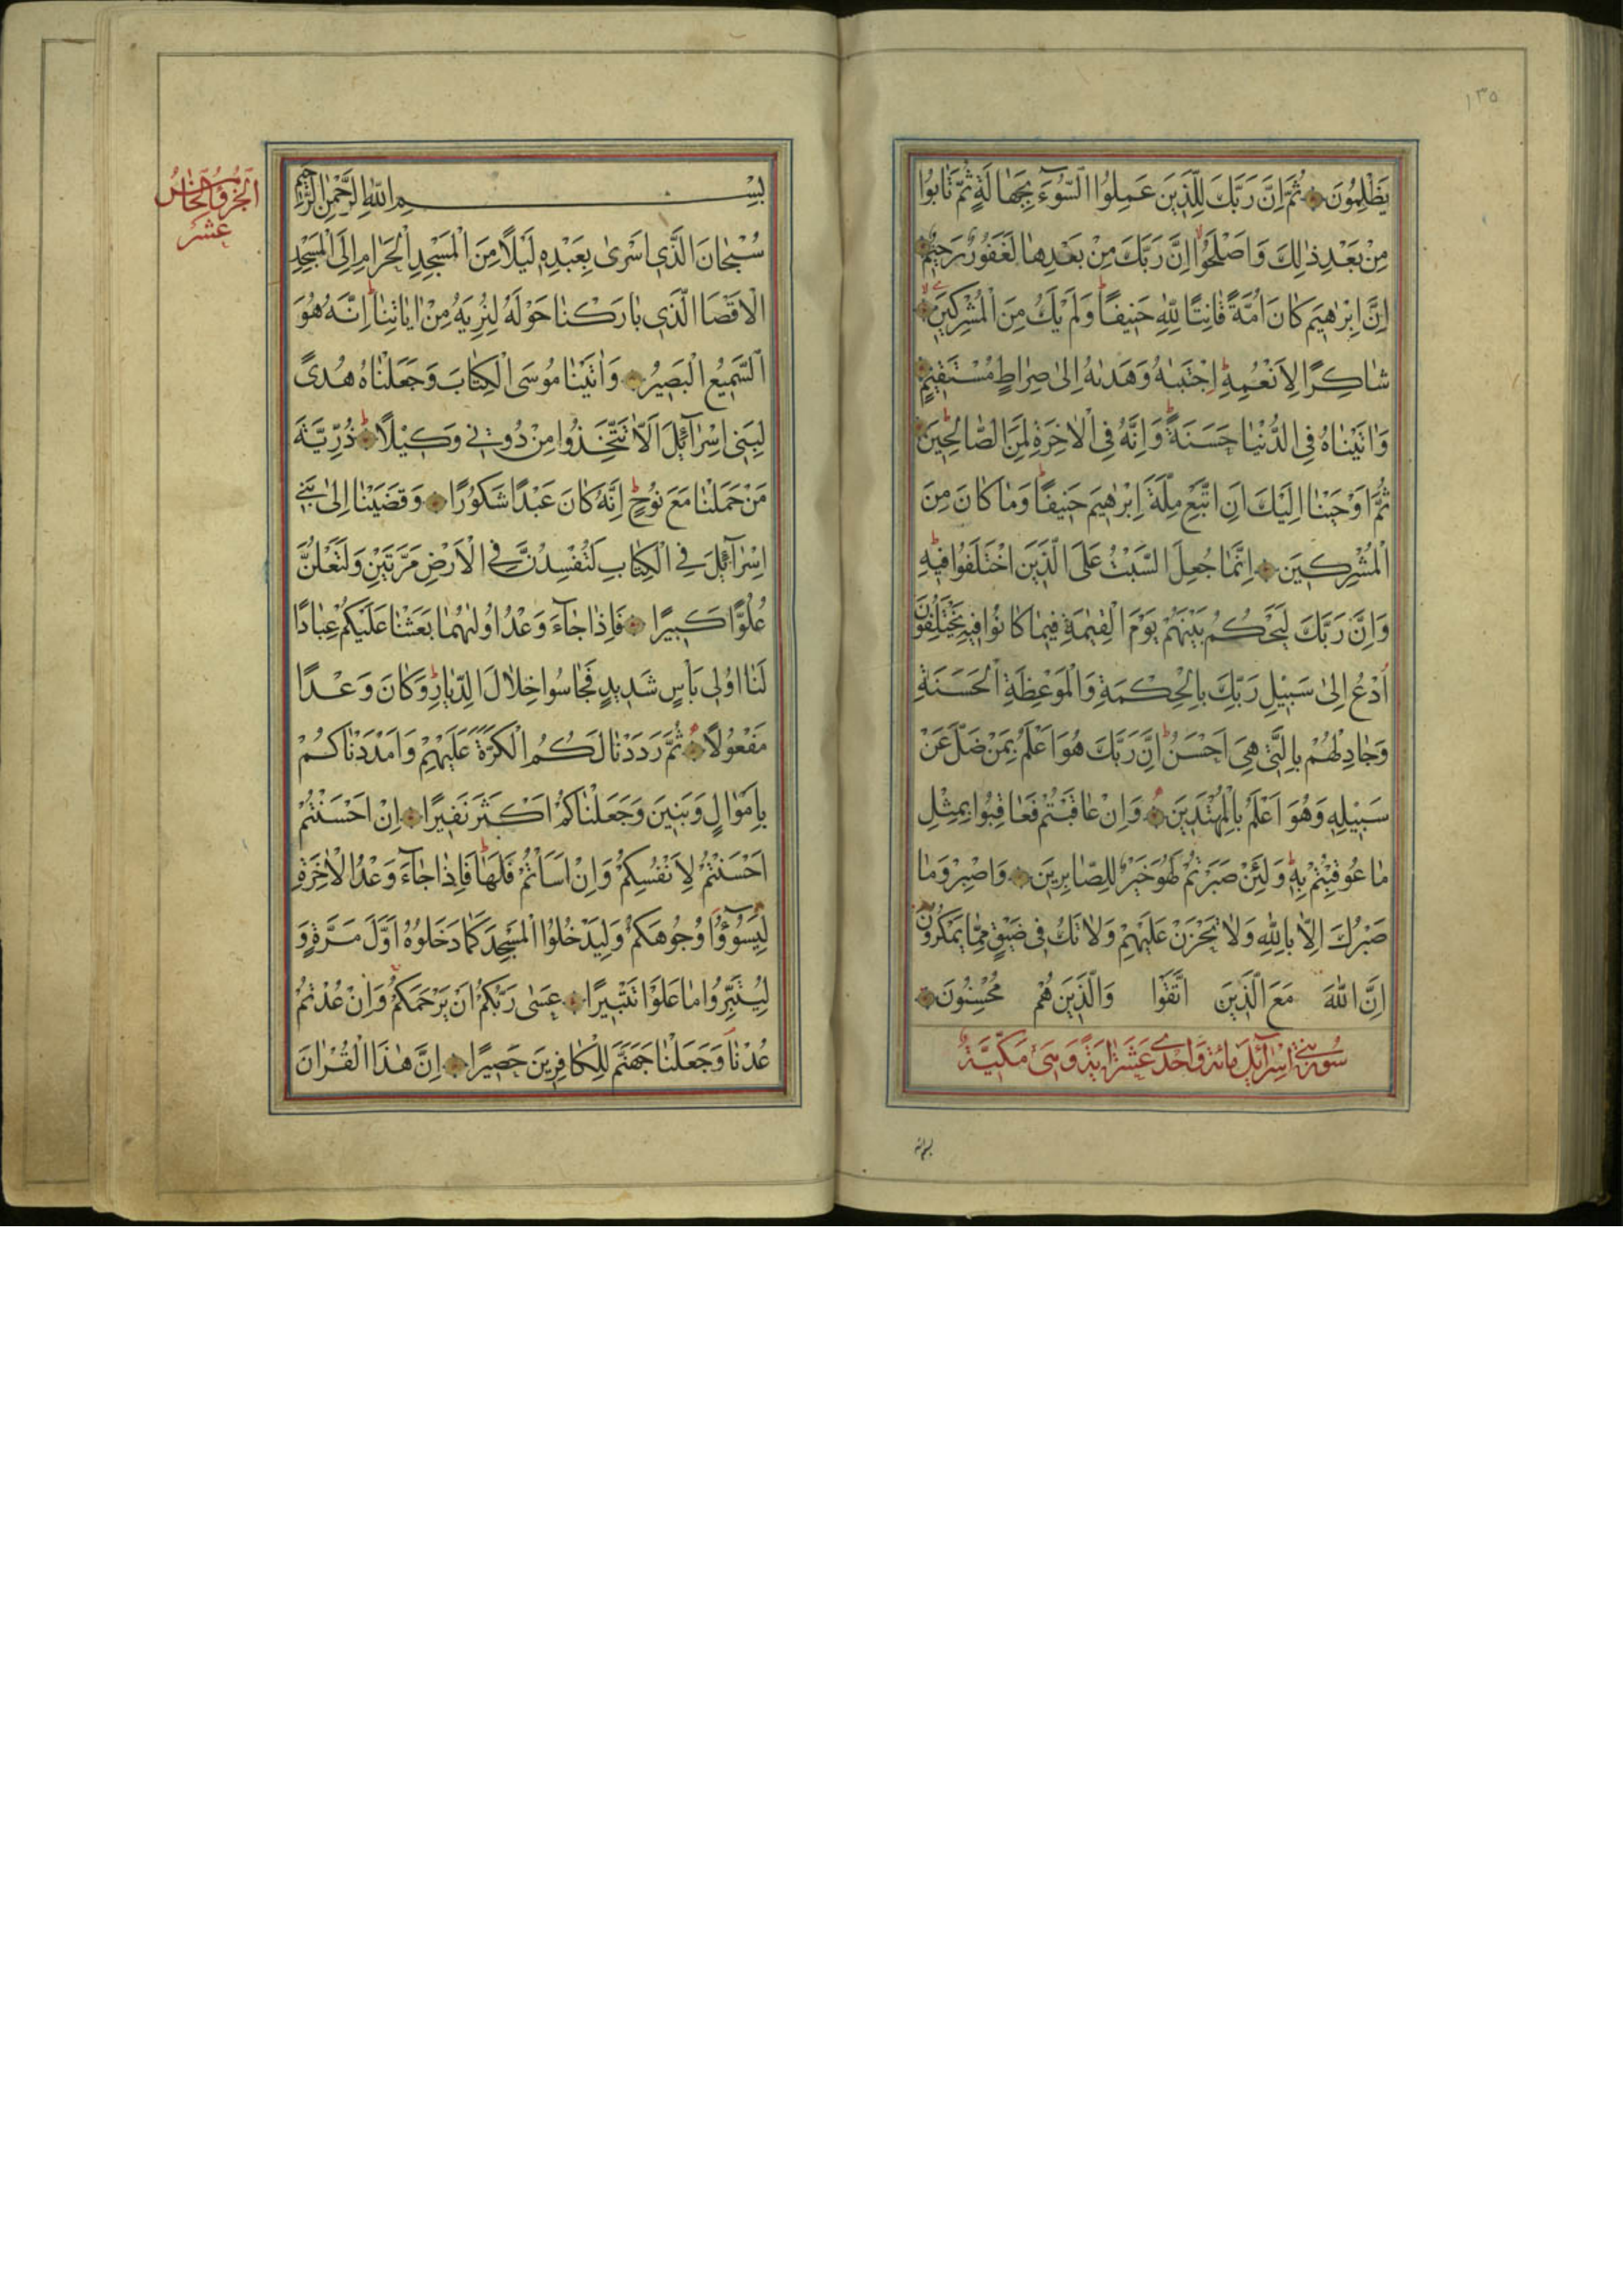 ١٣٥
يَظْلِمُونَ ثُمَّ اِنَّ رَبَّكَ لِلَّذِينَ عَمِلُوا السُّوٓءَ بِجَهٰالَةٍ ثُمَّ تٰابُوا
مِنْ بَعْدِ ذٰلِكَ وَاَصْلَحُوا اِنَّ رَبَّكَ مِنْ بَعْدِهٰا لَغَفُورٌ رَحِيمٌ
اِنَّ اِبْرٰهِيمَ كٰانَ اُمَّةً قٰانِتًا لِلّٰهِ حَنِيفًا وَلَمْ يَكُ مِنَ الْمُشْرِكِينَ
شٰاكِرًا لِاَنْعُمِهِ اِجْتَبٰيهُ وَهَدٰيهُ اِلىٰ صِرٰاطٍ مُسْتَقِيمٍ
وَاٰتَيْنٰاهُ فِى الدُّنْيٰا حَسَنَةً وَاِنَّهُ فِى الْاٰخِرَةِ لَمِنَ الصّٰالِحِينَ
ثُمَّ اَوْحَيْنٰا اِلَيْكَ اَنِ اتَّبِعْ مِلَّةَ اِبْرٰهِيمَ حَنِيفًا وَمٰا كٰانَ مِنَ
الْمُشْرِكِينَ اِنَّمٰا جُعِلَ السَّبْتُ عَلَى الَّذِينَ اخْتَلَفُوا فِيهِ
وَاِنَّ رَبَّكَ لَيَحْكُمُ بَيْنَهُمْ يَوْمَ الْقِيٰمَةِ فِيمٰا كٰانُوا فِيهِ يَخْتَلِفُونَ
اُدْعُ اِلىٰ سَبِيلِ رَبِّكَ بِالْحِكْمَةِ وَالْمَوْعِظَةِ الْحَسَنَةِ
وَجٰادِلْهُمْ بِالَّتِى هِىَ اَحْسَنُ اِنَّ رَبَّكَ هُوَ اَعْلَمُ بِمَنْ ضَلَّ عَنْ
سَبِيلِهِ وَهُوَ اَعْلَمُ بِالْمُهْتَدِينَ وَاِنْ عٰاقَبْتُمْ فَعٰاقِبُوا بِمِثْلِ
مٰا عُوقِبْتُمْ بِهِ وَلَئِنْ صَبَرْتُمْ لَهُوَ خَيْرٌ لِلصّٰابِرِينَ وَاصْبِرْ وَمٰا
صَبْرُكَ اِلّٰا بِاللّٰهِ وَلٰا تَحْزَنْ عَلَيْهِمْ وَلٰا تَكُ فِى ضَيْقٍ مِمّٰا يَمْكُرُونَ
اِنَّ اللّٰهَ مَعَ الَّذِينَ اتَّقَوْا وَالَّذِينَ هُمْ مُحْسِنُونَ
سُورَة بَنِى اِسْرٰآئِيلَ مِائَة وَاحْدٰى عَشَرَة اٰيَةً وَهِىَ مَكِّيَّةٌ
بسم الله
الجُزْؤُ الخٰامِسُ
عَشَرَ
بِسْمِ اللّٰهِ الرَّحْمٰنِ الرَّحِيمِ
سُبْحٰانَ الَّذِى اَسْرىٰ بِعَبْدِهِ لَيْلًا مِنَ الْمَسْجِدِ الْحَرٰامِ اِلَى الْمَسْجِدِ
الْاَقْصَا الَّذِى بٰارَكْنٰا حَوْلَهُ لِنُرِيَهُ مِنْ اٰيٰاتِنٰا اِنَّهُ هُوَ
السَّمِيعُ الْبَصِيرُ وَاٰتَيْنٰا مُوسَى الْكِتٰابَ وَجَعَلْنٰاهُ هُدًى
لِبَنِى اِسْرٰآئِيلَ اَلّٰا تَتَّخِذُوا مِنْ دُونِى وَكِيلًا ذُرِّيَّةَ
مَنْ حَمَلْنٰا مَعَ نُوحٍ اِنَّهُ كٰانَ عَبْدًا شَكُورًا وَقَضَيْنٰا اِلىٰ بَنِى
اِسْرٰآئِيلَ فِى الْكِتٰابِ لَتُفْسِدُنَّ فِى الْاَرْضِ مَرَّتَيْنِ وَلَتَعْلُنَّ
عُلُوًّا كَبِيرًا فَاِذٰا جٰآءَ وَعْدُ اُولٰيهُمٰا بَعَثْنٰا عَلَيْكُمْ عِبٰادًا
لَنٰا اُولِى بَأْسٍ شَدِيدٍ فَجٰاسُوا خِلٰالَ الدِّيٰارِ وَكٰانَ وَعْدًا
مَفْعُولًا ثُمَّ رَدَدْنٰا لَكُمُ الْكَرَّةَ عَلَيْهِمْ وَاَمْدَدْنٰاكُمْ
بِاَمْوٰالٍ وَبَنِينَ وَجَعَلْنٰاكُمْ اَكْثَرَ نَفِيرًا اِنْ اَحْسَنْتُمْ
اَحْسَنْتُمْ لِاَنْفُسِكُمْ وَاِنْ اَسَأْتُمْ فَلَهٰا فَاِذٰا جٰآءَ وَعْدُ الْاٰخِرَةِ
لِيَسُوٓؤُا وُجُوهَكُمْ وَلِيَدْخُلُوا الْمَسْجِدَ كَمٰا دَخَلُوهُ اَوَّلَ مَرَّةٍ وَ
لِيُتَبِّرُوا مٰا عَلَوْا تَتْبِيرًا عَسىٰ رَبُّكُمْ اَنْ يَرْحَمَكُمْ وَاِنْ عُدْتُمْ
عُدْنٰا وَجَعَلْنٰا جَهَنَّمَ لِلْكٰافِرِينَ حَصِيرًا اِنَّ هٰذَا الْقُرْاٰنَ